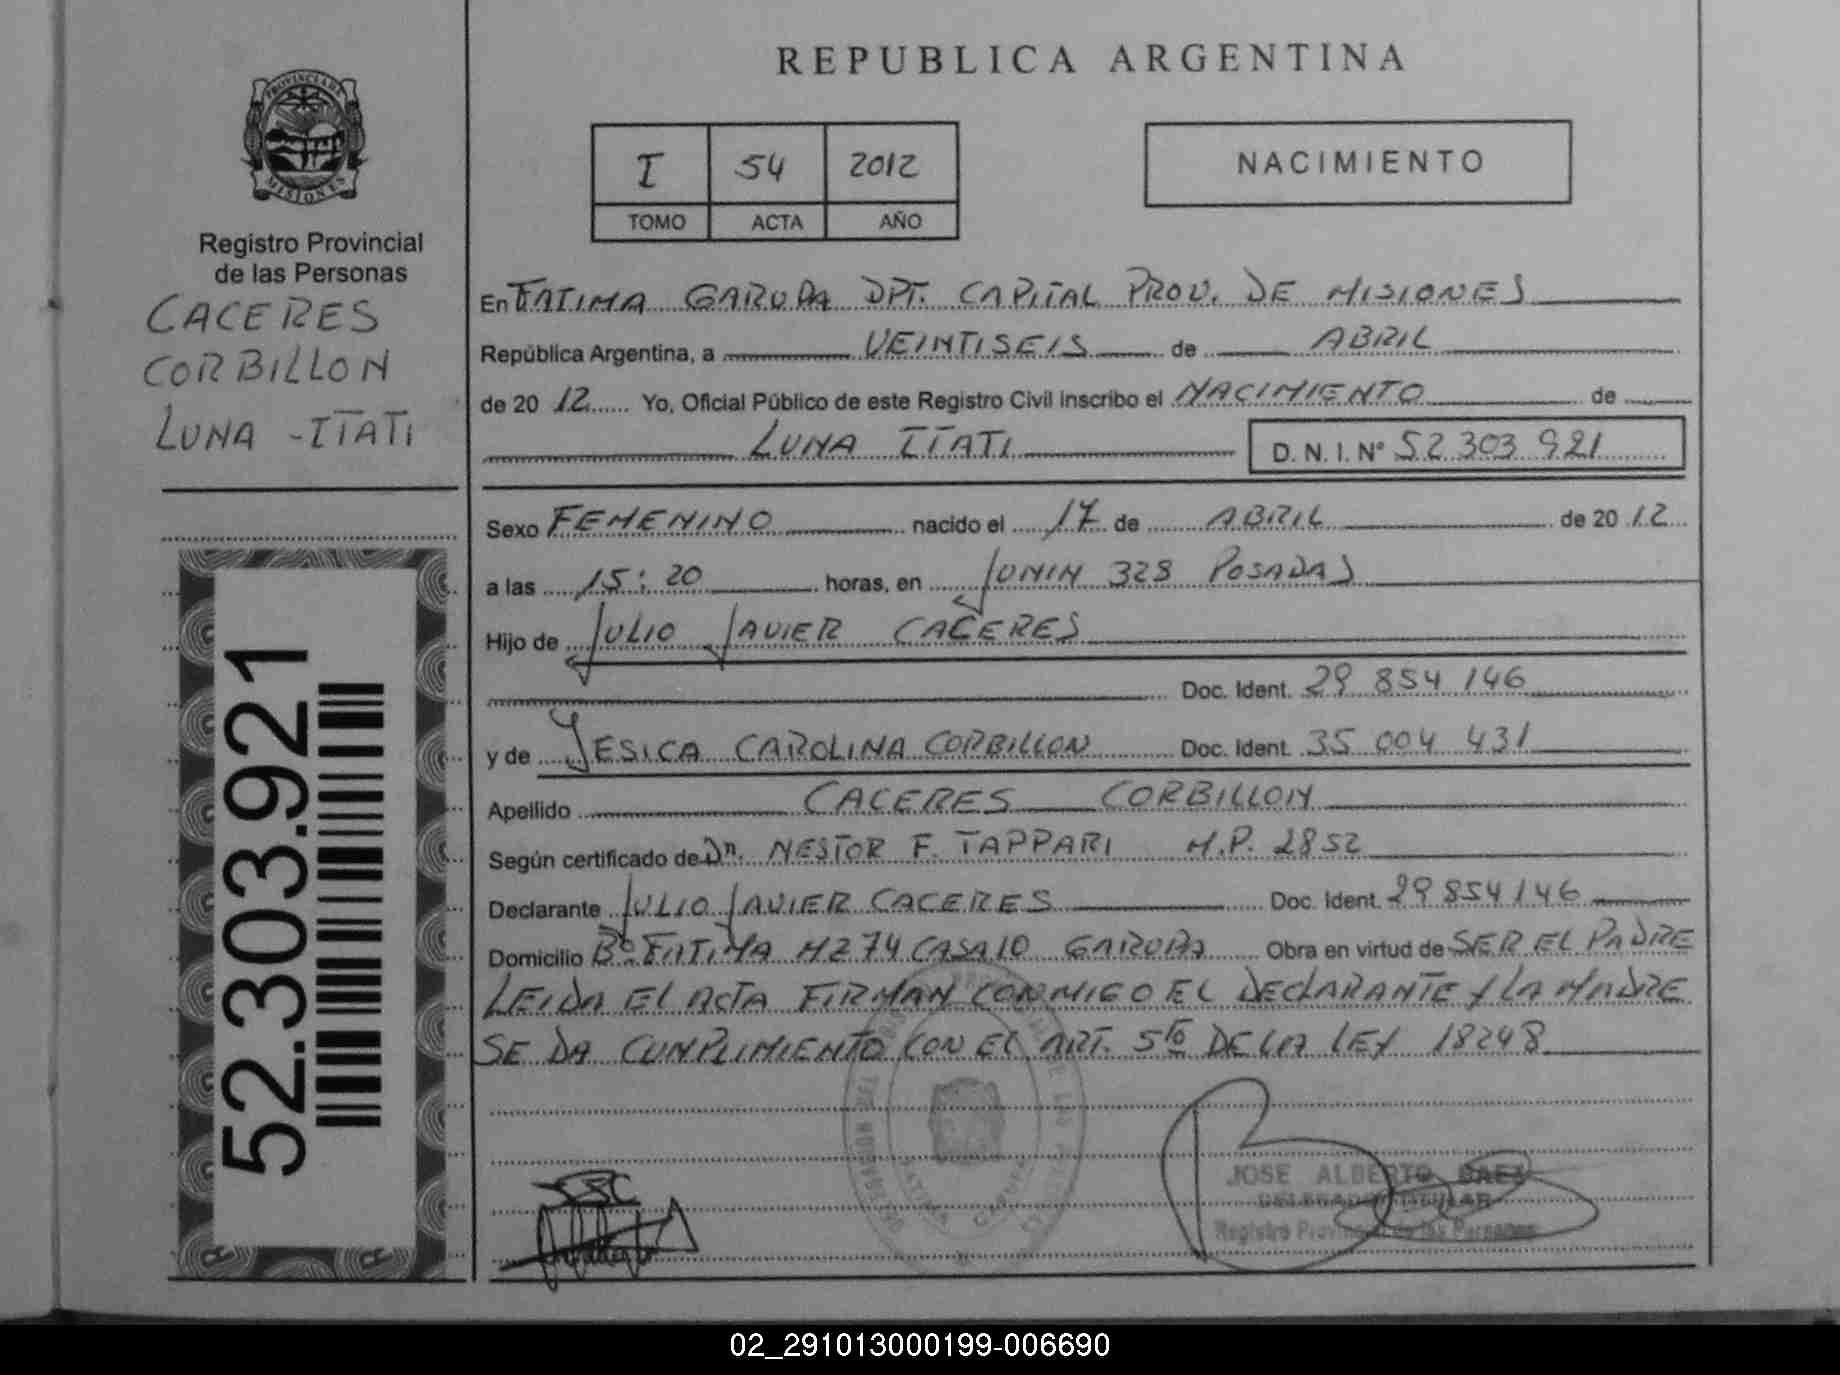 PROVINCIA DE
MISIONES
Registro Provincial
de las Personas
CACERES
CORBILLON
LUNA - ITATI
52.303.921
REPUBLICA ARGENTINA
I 54 2012
TOMO ACTA AÑO
NACIMIENTO
En FATIMA GARUPA DPT. CAPITAL PROV. DE MISIONES
República Argentina, a VEINTISEIS de ABRIL
de 20 12 Yo, Oficial Público de este Registro Civil inscribo el NACIMIENTO de
LUNA ITATI D. N. I. N° 52 303 921
Sexo FEMENINO nacido el 17 de ABRIL de 20 12
a las 15:20 horas, en JUNIN 328 POSADAS
Hijo de JULIO JAVIER CACERES
Doc. Ident. 29 854 146
y de YESICA CAROLINA CORBILLON Doc. Ident. 35 004 431
Apellido CACERES CORBILLON
Según certificado de Dr. NESTOR F. TAPPARI M.P. 2852
Declarante JULIO JAVIER CACERES Doc. Ident. 29 854 146
Domicilio B° FATIMA MZ 74 CASA 10 GARUPA Obra en virtud de SER EL PADRE
LEIDA EL ACTA FIRMAN CONMIGO EL DECLARANTE Y LA MADRE
SE DA CUMPLIMIENTO CON EL ART. 5to DE LA LEY 18248
JOSE ALBERTO BAEZ
DELEGADO TITULAR
Registro Provincial de las Personas
02_291013000199-006690